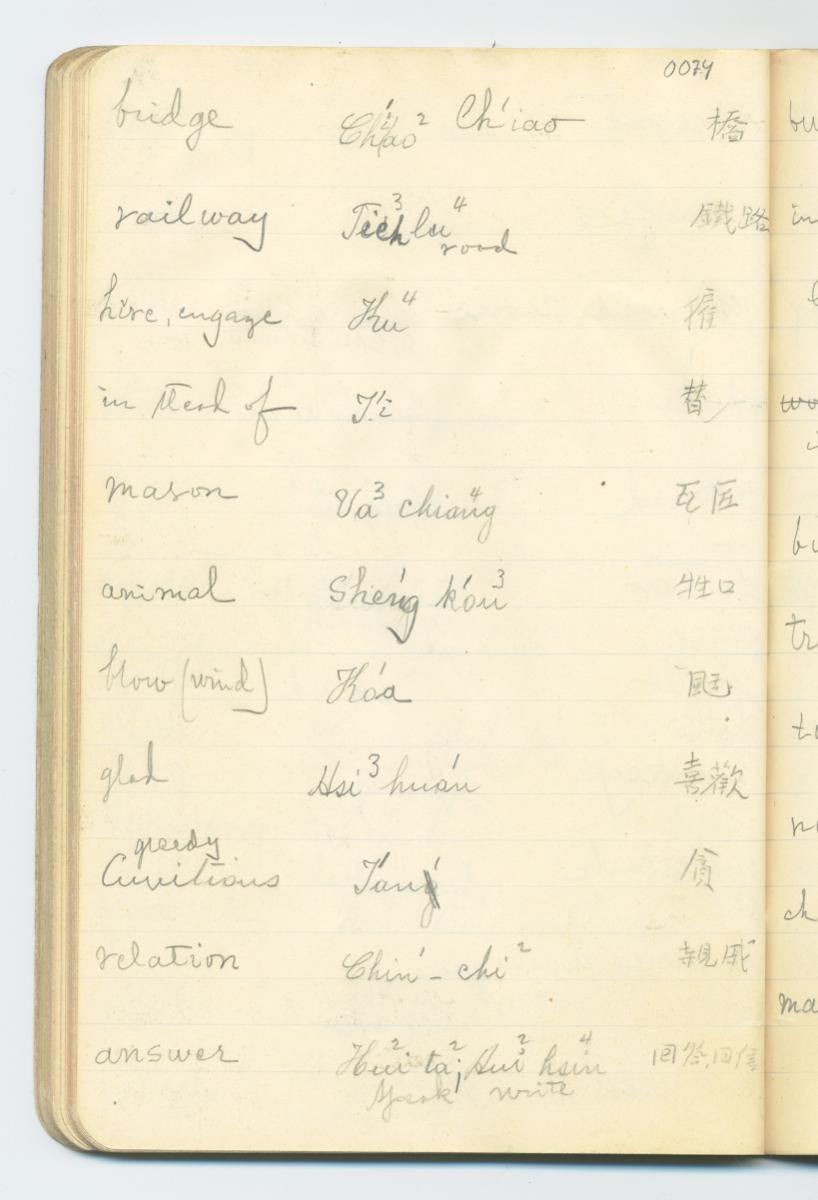 0074
bridge Ch'ao² Ch'iao 橋
railway Tieh³ lu⁴ 鐵路
road
hire, engage Ku⁴ 雇
in stead of T'i 替
mason Va³ chiang⁴ 瓦匠
animal Shéng k'óu³ 牲口
blow (wind) Kóa 颳
glad Hsi³ huán 喜歡
greedy
T'an 貪
relation Chin' - chi² 親戚
answer Hui² ta²; Hui² hsin⁴ 回答,回信
write